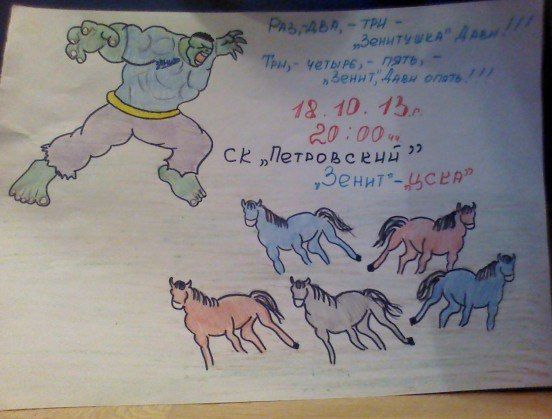 Раз,-два,-три -
„Зенитушка" Дави!!!
Три,- четыре,- пять,-
„Зенит", Дави опять!!!
18.10.13г.
20:00чч
СК „Петровский"
„Зенит"-„ЦСКА"